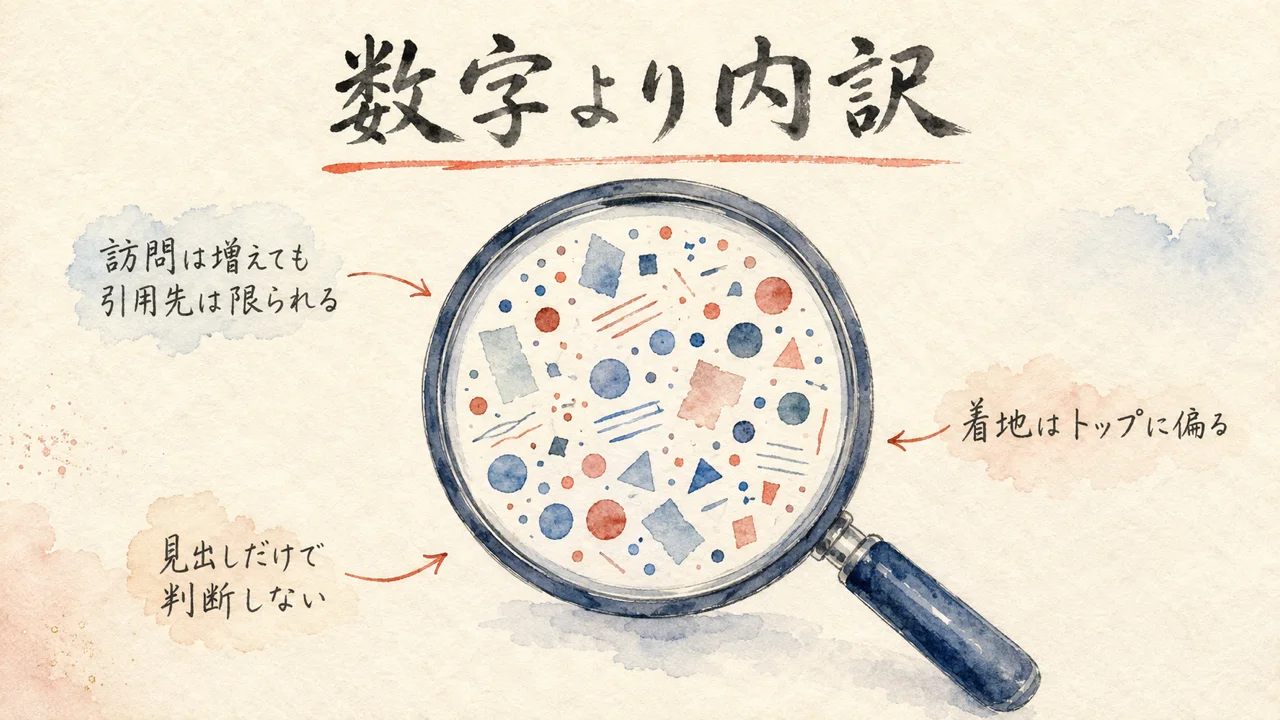 数字より内訳
訪問は増えても
引用先は限られる
着地はトップに偏る
見出しだけで
判断しない